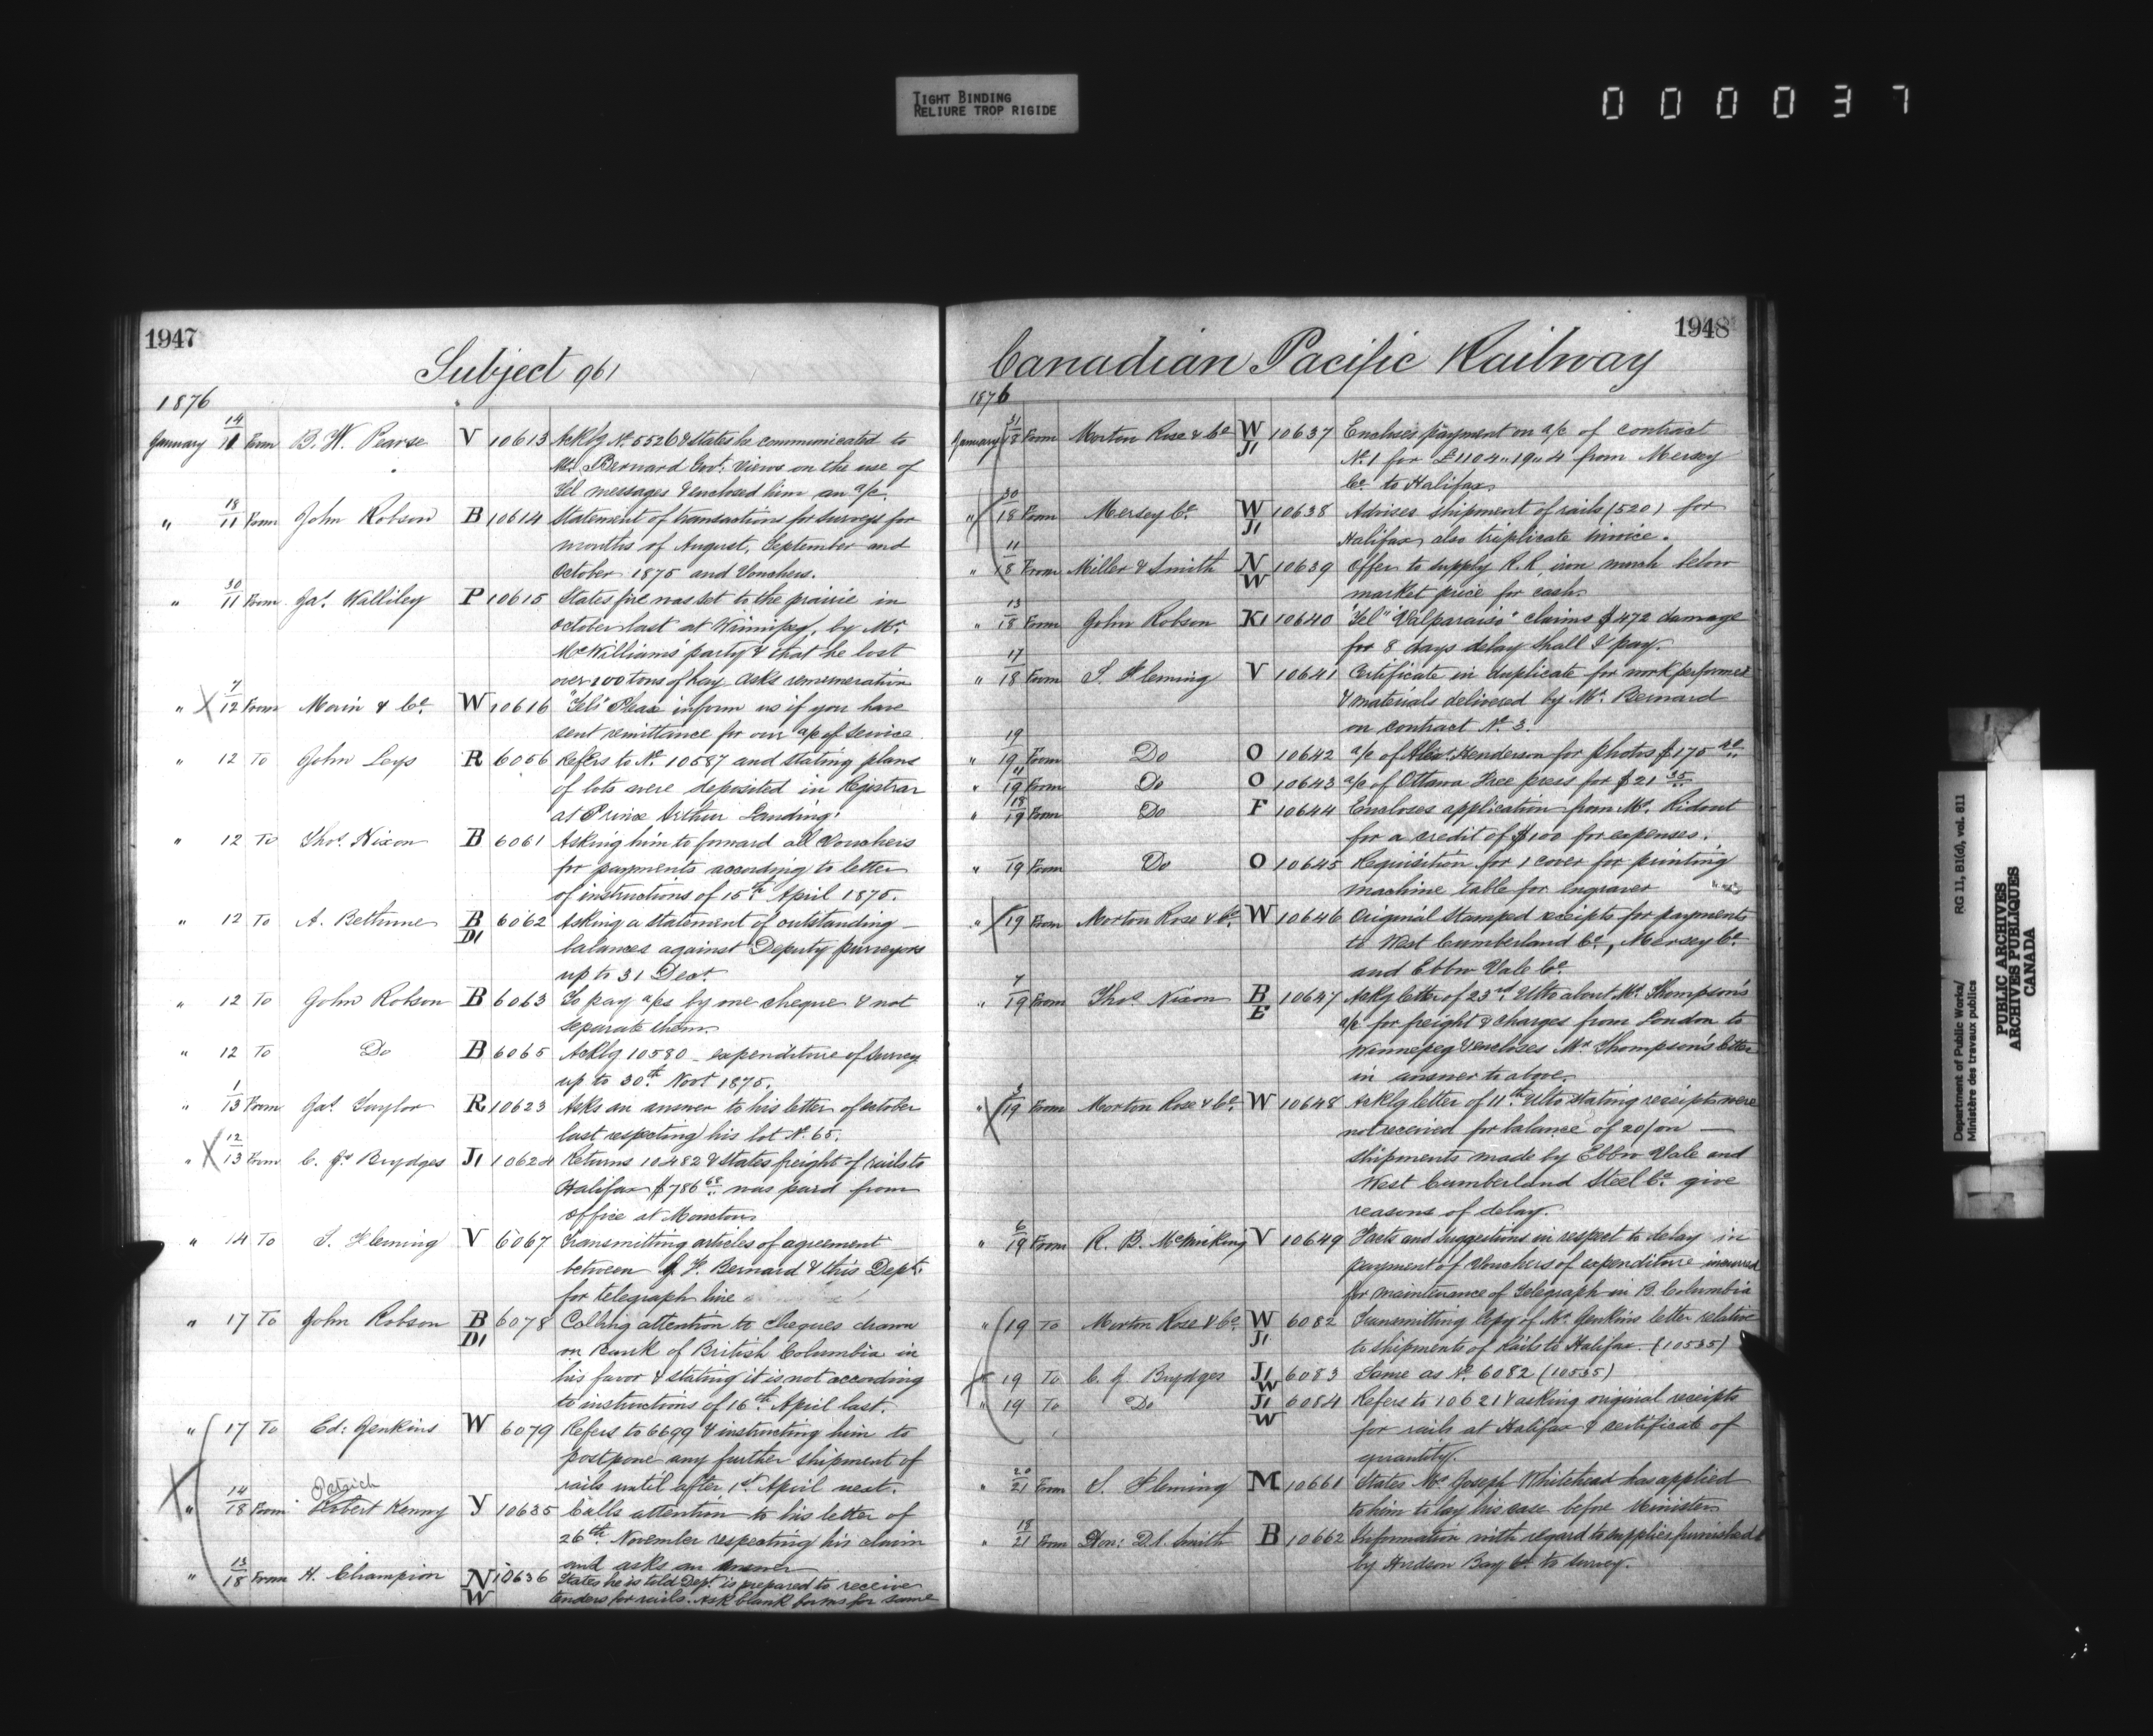 TIGHT BINDING
RELIURE TROP RIGIDE
000037
1947
Subject 961
1876
January 14/11 From B. W. Pearse V 10613 Ackg No. 5526 & states he communicated to
Mr. Bernard Govt. views on the use of
Tel messages & enclosed him an a/c.
" 18/11 From John Robson B 10614 Statement of transactions for surveys for
months of August, September and
October 1875 and Vouchers.
" 30/11 From Jas. Walliley P 10615 States fire was set to the prairie in
October last at Winnipeg, by Mr.
McWilliams' party & that he lost
over 200 tons of hay asks remuneration
" 7/12 From Morin & Co. W 10616 "Tel" Please inform us if you have
sent remittance for our a/c of service
" 12 To John Leys R 6056 Refers to No. 10587 and stating plans
of lots were deposited in Registrar
at Prince Arthur Landing.
" 12 To Thos. Nixon B 6061 Asking him to forward all Vouchers
for payments according to letter
of instructions of 15th April 1875.
" 12 To A. Bethune B D1 6062 Asking a statement of outstanding
balances against Deputy purveyors
up to 31 Dect
" 12 To John Robson B 6063 To pay a/cs by one cheque & not
separate them.
" 12 To Do B 6065 Ackg 10580 - expenditure of survey
up to 30th Novr 1875.
" 1/13 From Jas. Taylor R 10623 Asks an answer to his letter of october
last respecting his lot No. 65.
" 12/13 From C. J. Brydges J1 10624 Returns 10482 & states freight of rails to
Halifax $786 68 was paid from
office at Moncton
" 14 To S. Fleming V 6067 Transmitting articles of agreement
between J. F. Bernard & this Dept.
for telegraph line
" 17 To John Robson B D1 6078 Calling attention to Cheques drawn
on Bank of British Columbia in
his favor & stating it is not according
to instructions of 16th April last.
" 17 To Ed: Jenkins W 6079 Refers to 6699 & instructing him to
postpone any further shipment of
rails until after 1st April next.
Patrick
" 14/18 From Robert Kenny Y 10635 Calls attention to his letter of
26th November respecting his claim
and asks an answer
" 13/18 From H. Champion N W 10636 States he is told Dept. is prepared to receive
tenders for rails. Ask blank forms for same
1948
Canadian Pacific Railway
1876
January 31/18 From Morton Rose & Co W J1 10637 Encloses payment on a/c of contract
No. 1 for £1104 " 19 " 4 from Mersey
Co. to Halifax
" 30/18 From Mersey Co. W J1 10638 Advises shipment of rails (520) for
Halifax also triplicate invoice.
" 11/18 From Miller & Smith N W 10639 Offer to supply R.R. iron much below
market price for cash.
" 13/18 From John Robson K1 10640 "Tel" "Valparaiso" claims $472 damage
for 8 days delay shall I pay.
" 17/18 From S. Fleming V 10641 Certificate in duplicate for work performed
& materials delivered by Mr. Bernard
on contract No. 3.
" 19/19 From Do O 10642 a/c of Alex. Henderson for photos $175
" 11/19 From Do O 10643 a/c of Ottawa Free press for $21 35
" 18/19 From Do F 10644 Encloses application from Mr. Ridout
for a credit of $100 for expenses.
" 19 From Do O 10645 Requisition for 1 cover for printing
machine table for engraver
" 19 From Morton Rose & Co. W 10646 Original stamped receipts for payments
to West Cumberland Co., Mersey Co.
and Ebbw Vale Co.
" 7/19 From Thos Nixon B E 10647 Ackg letter of 23rd Ulto about Mr. Thompson's
a/c for freight & charges from London to
Winnepeg & encloses Mr Thompson's letter
in answer to above.
" 3/19 From Morton Rose & Co. W 10648 Ackg letter of 11th Ulto stating receipts were
not received for balance of 20/on
shipments made by Ebbw Vale and
West Cumberland Steel Co. give
reasons of delay.
" 6/19 From R. B. McMicking V 10649 Facts and Suggestions in respect to delay in
payment of Vouchers of expenditure incurred
for maintenance of Telegraph in B. Columbia
" 19 To Morton Rose & Co. W J1 6082 Transmitting Copy of Mr. Jenkins letter relative
to shipments of Rails to Halifax. (10535)
" 19 To C. J. Brydges J1 W 6083 Same as No. 6082 (10535)
" 19 To Do J1 W 6084 Refers to 10621 & asking original receipts
for rails at Halifax & certificate of
quantity.
" 20/21 From S. Fleming M 10661 States Mr Joseph Whitehead has applied
to him to lay his case before Minister
" 18/21 From Hon: D. A. Smith B 10662 Information with regard to supplies furnished
by Hudson Bay Co. to survey.
Department of Public Works/
Ministère des travaux publics
RG 11, B1(d), vol. 611
PUBLIC ARCHIVES
ARCHIVES PUBLIQUES
CANADA